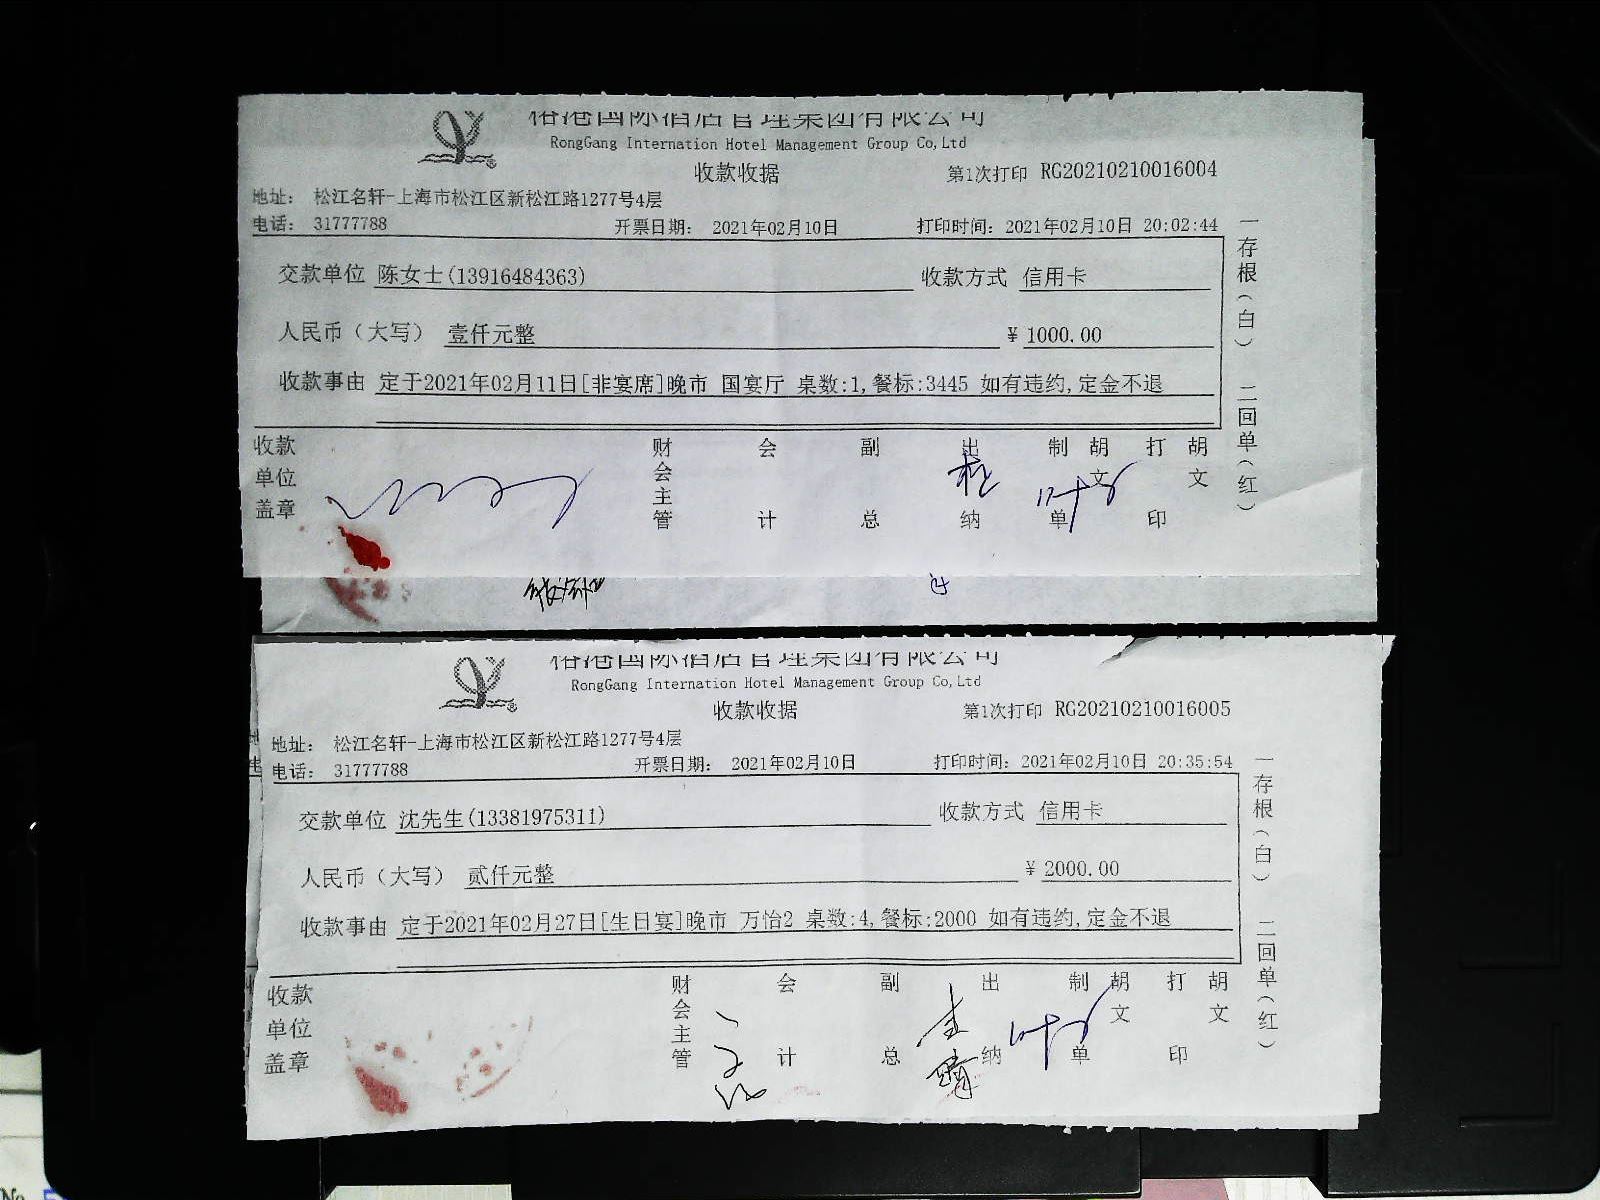 榕港国际酒店管理集团有限公司
RongGang Internation Hotel Management Group Co,Ltd
收款收据 第1次打印 RG20210210016004
地址： 松江名轩-上海市松江区新松江路1277号4层
电话： 31777788 开票日期： 2021年02月10日 打印时间： 2021年02月10日 20:02:44
交款单位 陈女士(13916484363) 收款方式 信用卡
人民币（大写） 壹仟元整 ¥ 1000.00
收款事由 定于2021年02月11日[非宴席]晚市 国宴厅 桌数:1,餐标:3445 如有违约,定金不退
收款单位盖章 财会主管 会计 副总 出纳 制单 胡文 打印 胡文
一存根（白） 二回单（红）
榕港国际酒店管理集团有限公司
RongGang Internation Hotel Management Group Co,Ltd
收款收据 第1次打印 RG20210210016005
地址： 松江名轩-上海市松江区新松江路1277号4层
电话： 31777788 开票日期： 2021年02月10日 打印时间： 2021年02月10日 20:35:54
交款单位 沈先生(13381975311) 收款方式 信用卡
人民币（大写） 贰仟元整 ¥ 2000.00
收款事由 定于2021年02月27日[生日宴]晚市 万怡2 桌数:4,餐标:2000 如有违约,定金不退
收款单位盖章 财会主管 会计 副总 出纳 制单 胡文 打印 胡文
一存根（白） 二回单（红）
No